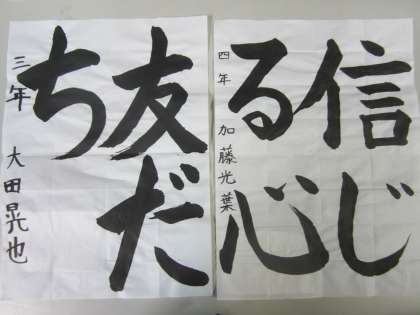 信じ
る心
四年 加藤光葉
友だ
ち
三年 大田晃也